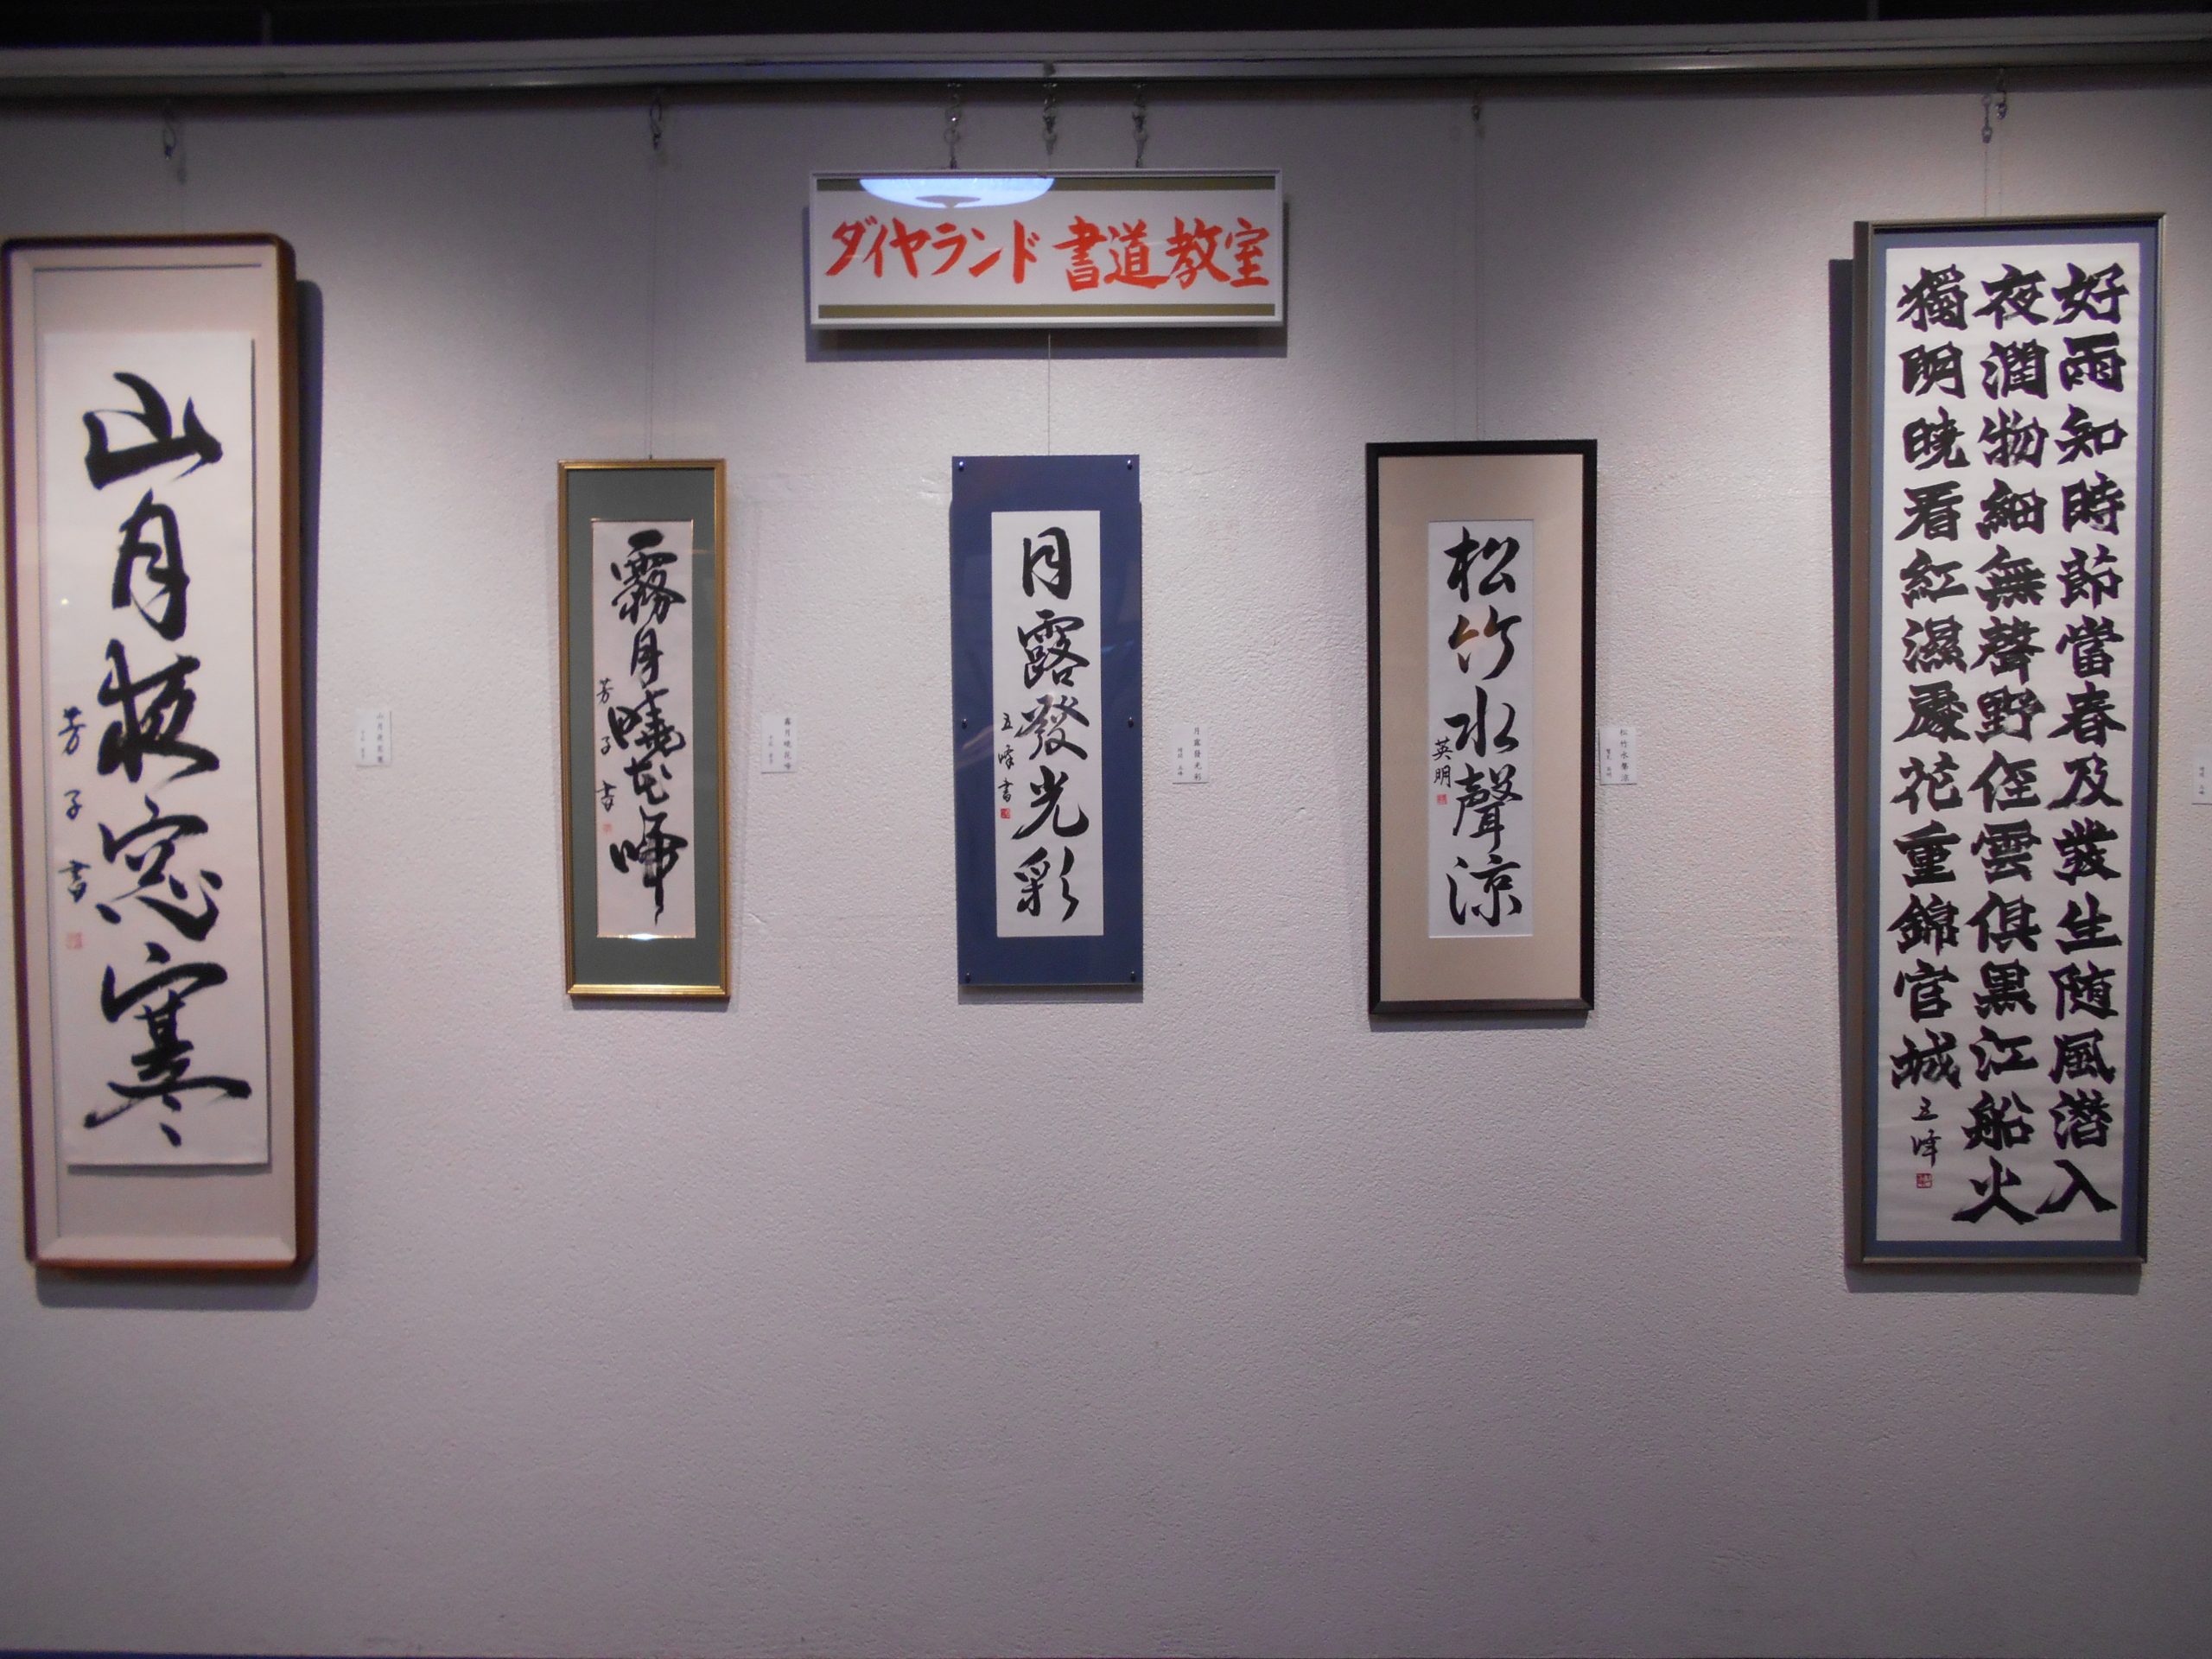 ダイヤランド 書道教室
山月夜窓寒
芳子書
霧月曉花啼
芳子書
月露發光彩
五峰書
松竹水聲涼
英明
好雨知時節當春及發生随風潜入
夜潤物細無聲野径雲倶黒江船火
獨明曉看紅濕處花重錦官城
五峰
月露發光彩
松竹水聲涼